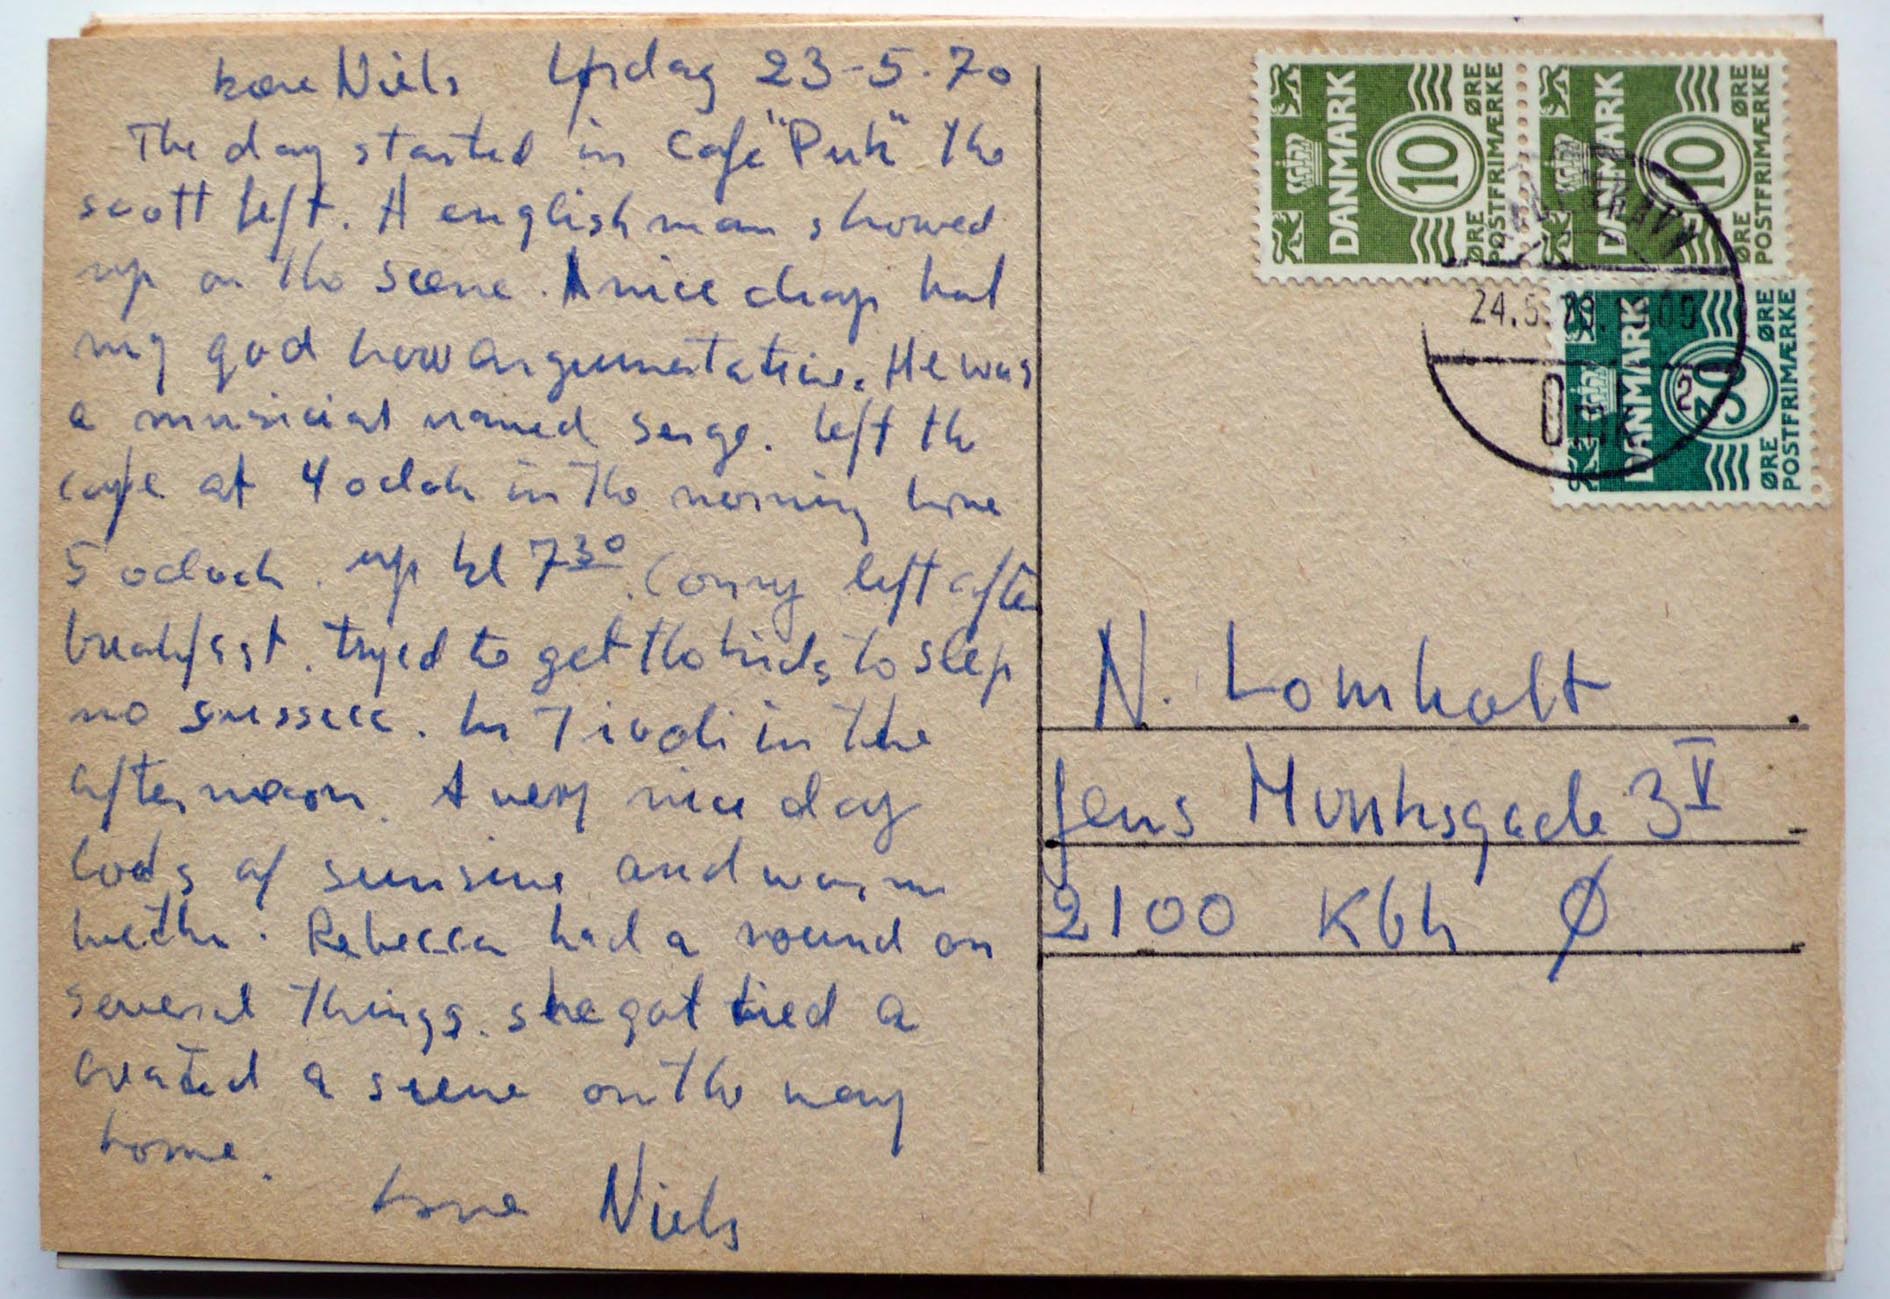 kære Niels Lørdag 23-5-70
The day started in Café "Puk" the
scott left. A english man showed
up on the scene. A nice chap but
my god how argumentative. He was
a musicial named serge. left the
cafe at 4 oclok in the morning home
5 oclock. up kl 7 30. Conny left after
breakfast. tryed to get the kids to slep
no sussecc. In Tivoli in the
afternoon. A very nice day
lods of sunsine and warm
wether. Rebecca had a round on
several things. she got tied a
created a scene on the way
home.
Love Niels
DANMARK 10 ØRE ØRE POSTFRIMÆRKE
DANMARK 10 ØRE ØRE POSTFRIMÆRKE
DANMARK 30 ØRE ØRE POSTFRIMÆRKE
24.5.70.
N. Lomholt
Jens Munksgade 3 V
2100 Kbh Ø